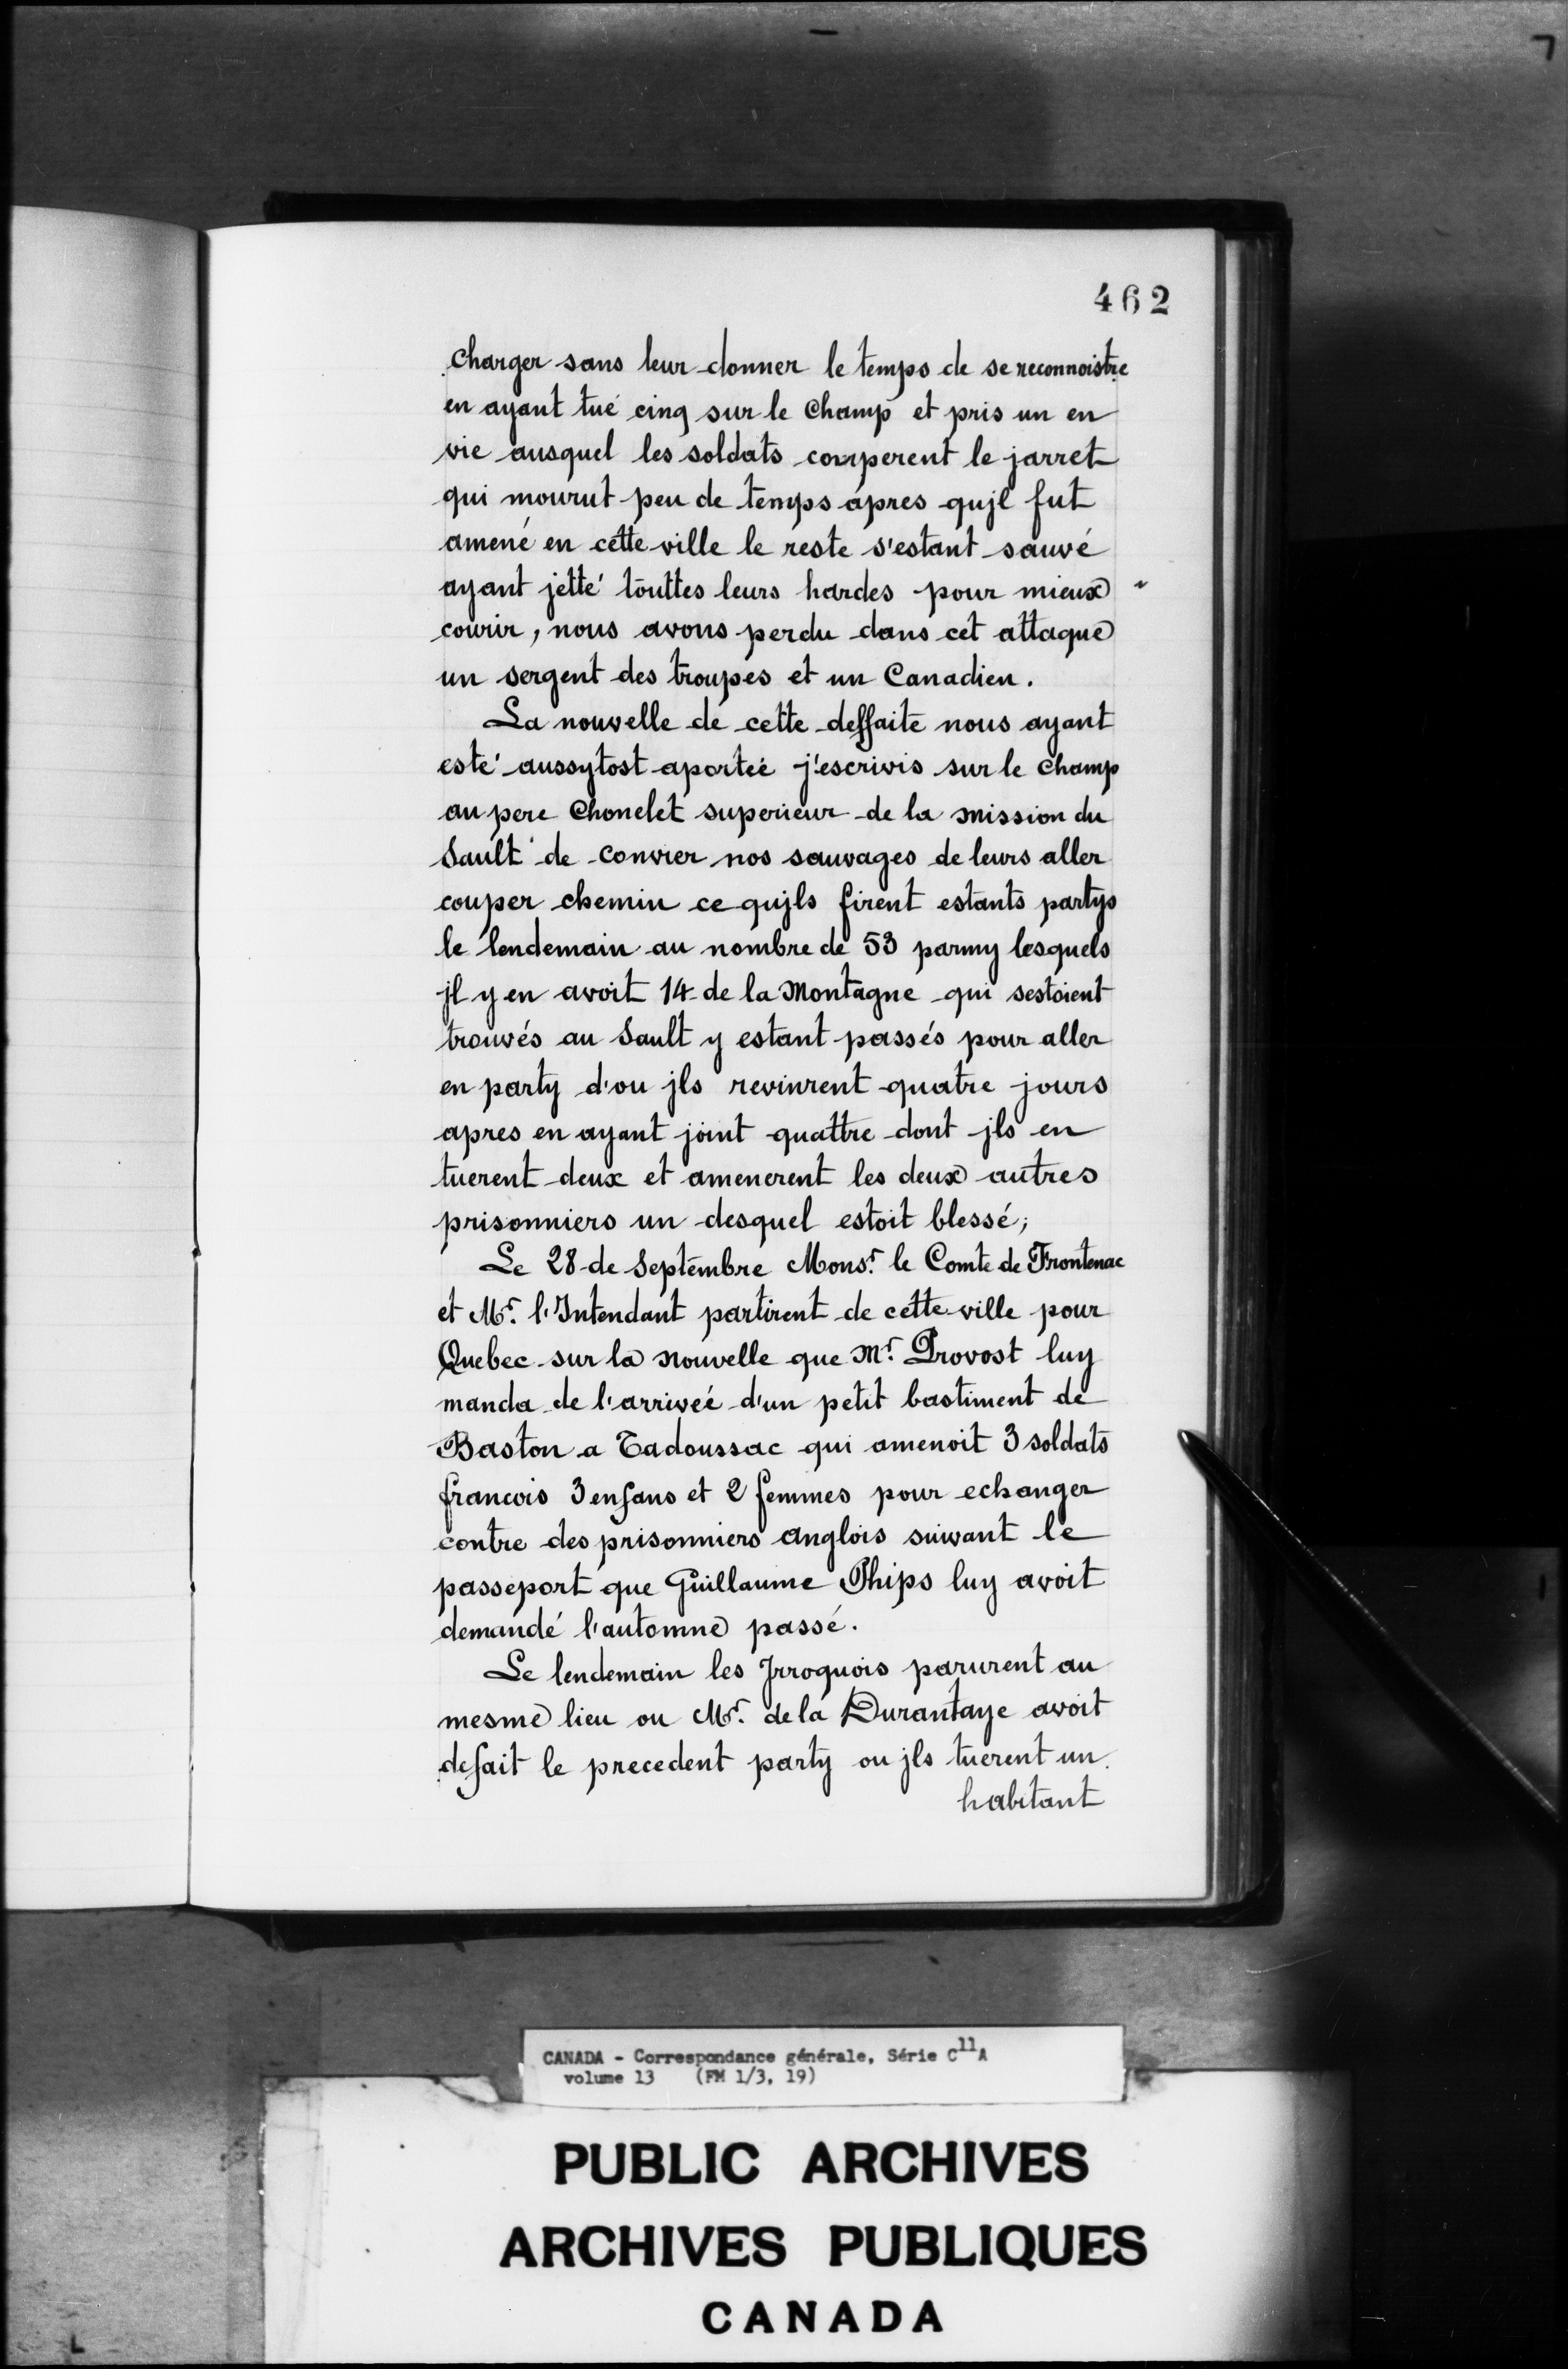 462
charger sans leur donner le temps de se reconnoistre
en ayant tué cinq sur le champ et pris un en
vie ausquel les soldats couperent le jarret
qui mourut peu de temps apres qujl fut
amené en cette ville le reste s'estant sauvé
ayant jetté touttes leurs hardes pour mieux
courir, nous avons perdu dans cet attaque
un sergent des troupes et un Canadien.
La nouvelle de cette deffaite nous ayant
esté aussytost aportée j'escrivis sur le champ
au pere Chonelet superieur de la mission du
Sault de convier nos sauvages de leurs aller
couper chemin ce qujls firent estants partys
le lendemain au nombre de 53 parmy lesquels
jl y en avoit 14 de la Montagne qui sestoient
trouvés au Sault y estant passés pour aller
en party d'ou jls revinrent quatre jours
apres en ayant joint quattre dont jls en
tuerent deux et amenerent les deux autres
prisonniers un desquel estoit blessé;
Le 28 de Septembre Monsr. le Comte de Frontenac
et Mr. l'Intendant partirent de cette ville pour
Quebec sur la nouvelle que Mr. Provost luy
manda de l'arriveé d'un petit bastiment de
Baston a Tadoussac qui amenoit 3 soldats
francois 3 enfans et 2 femmes pour echanger
contre des prisonniers anglois suivant le
passeport que Guillaume Phips luy avoit
demandé l'automne passé.
Le lendemain les Jrroquois parurent au
mesme lieu ou Mr. de la Durantaye avoit
defait le precedent party ou jls tuerent un
habitant
CANADA - Correspondance générale, Série C11A
volume 13 (FM 1/3, 19)
PUBLIC ARCHIVES
ARCHIVES PUBLIQUES
CANADA